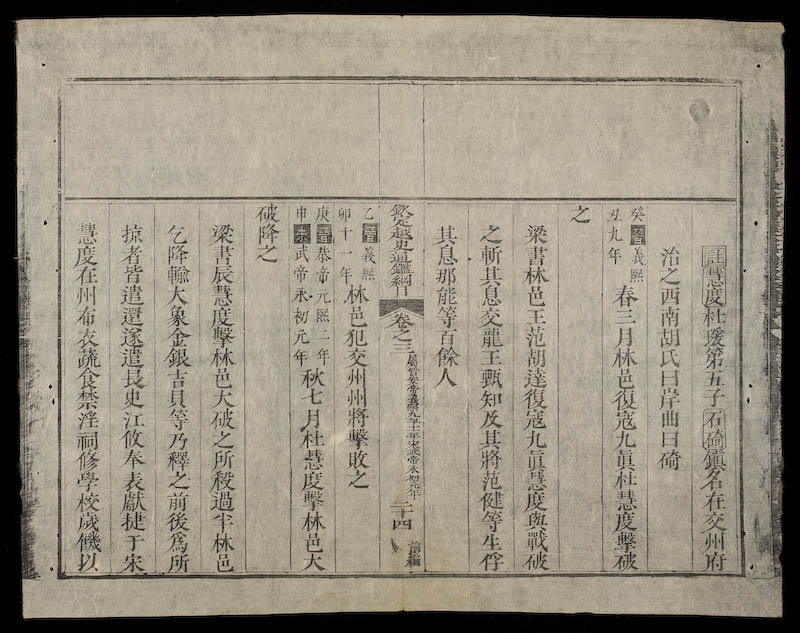 註慧度杜瑗第五子石碕鎮名在交州府
治之西南胡氏曰岸曲曰碕
癸丑晉義熙九年春三月林邑復寇九眞杜慧度擊破
之
梁書林邑王范胡達復寇九眞慧度與戰破
之斬其息交龍王甄知及其將范健等生俘
其息那能等百餘人
欽定越史通鑑綱目 卷之三 屬晉安帝義熙九年十一年宋武帝永初元年 二十四 前編
乙卯晉義熙十一年林邑犯交州州將擊敗之
庚申晉恭帝元熙二年宋武帝永初元年秋七月杜慧度擊林邑大
破降之
梁書辰慧度擊林邑大破之所殺過半林邑
乞降輸大象金銀吉貝等乃釋之前後爲所
掠者皆遣還遂遣長史江攸奉表獻捷于宋
慧度在州布衣蔬食禁淫祠修學校歲饑以